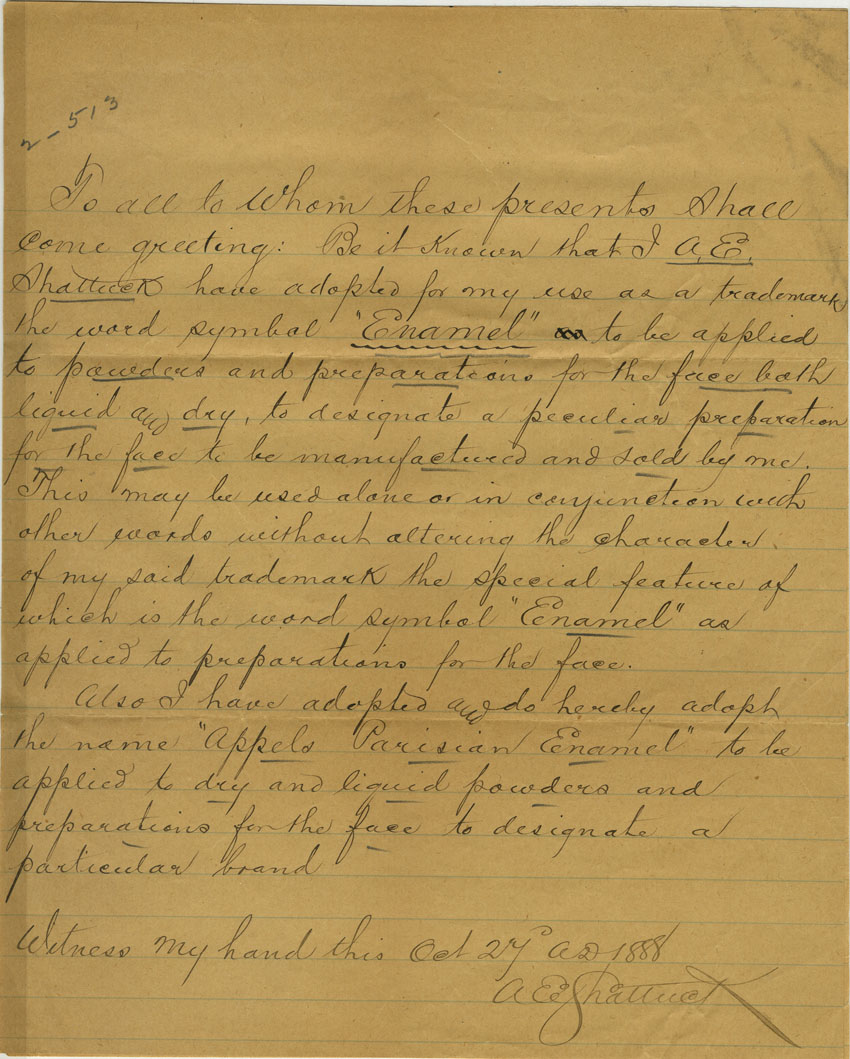 2-513
To all to Whom these presents Shall
come greeting: Be it Known that I A.E.
Shattuck have adopted for my use as a trademark
the word symbol "Enamel" to be applied
to powders and preparations for the face both
liquid and dry, to designate a peculiar preparation
for the face to be manufactured and sold by me.
This may be used alone or in conjunction with
other words without altering the character
of my said trademark the special feature of
which is the word symbol "Enamel" as
applied to preparations for the face.
Also I have adopted and do hereby adopt
the name "Appels Parisian Enamel" to be
applied to dry and liquid powders and
preparations for the face to designate a
particular brand
Witness my hand this Oct 27 AD 1888
A E Shattuck